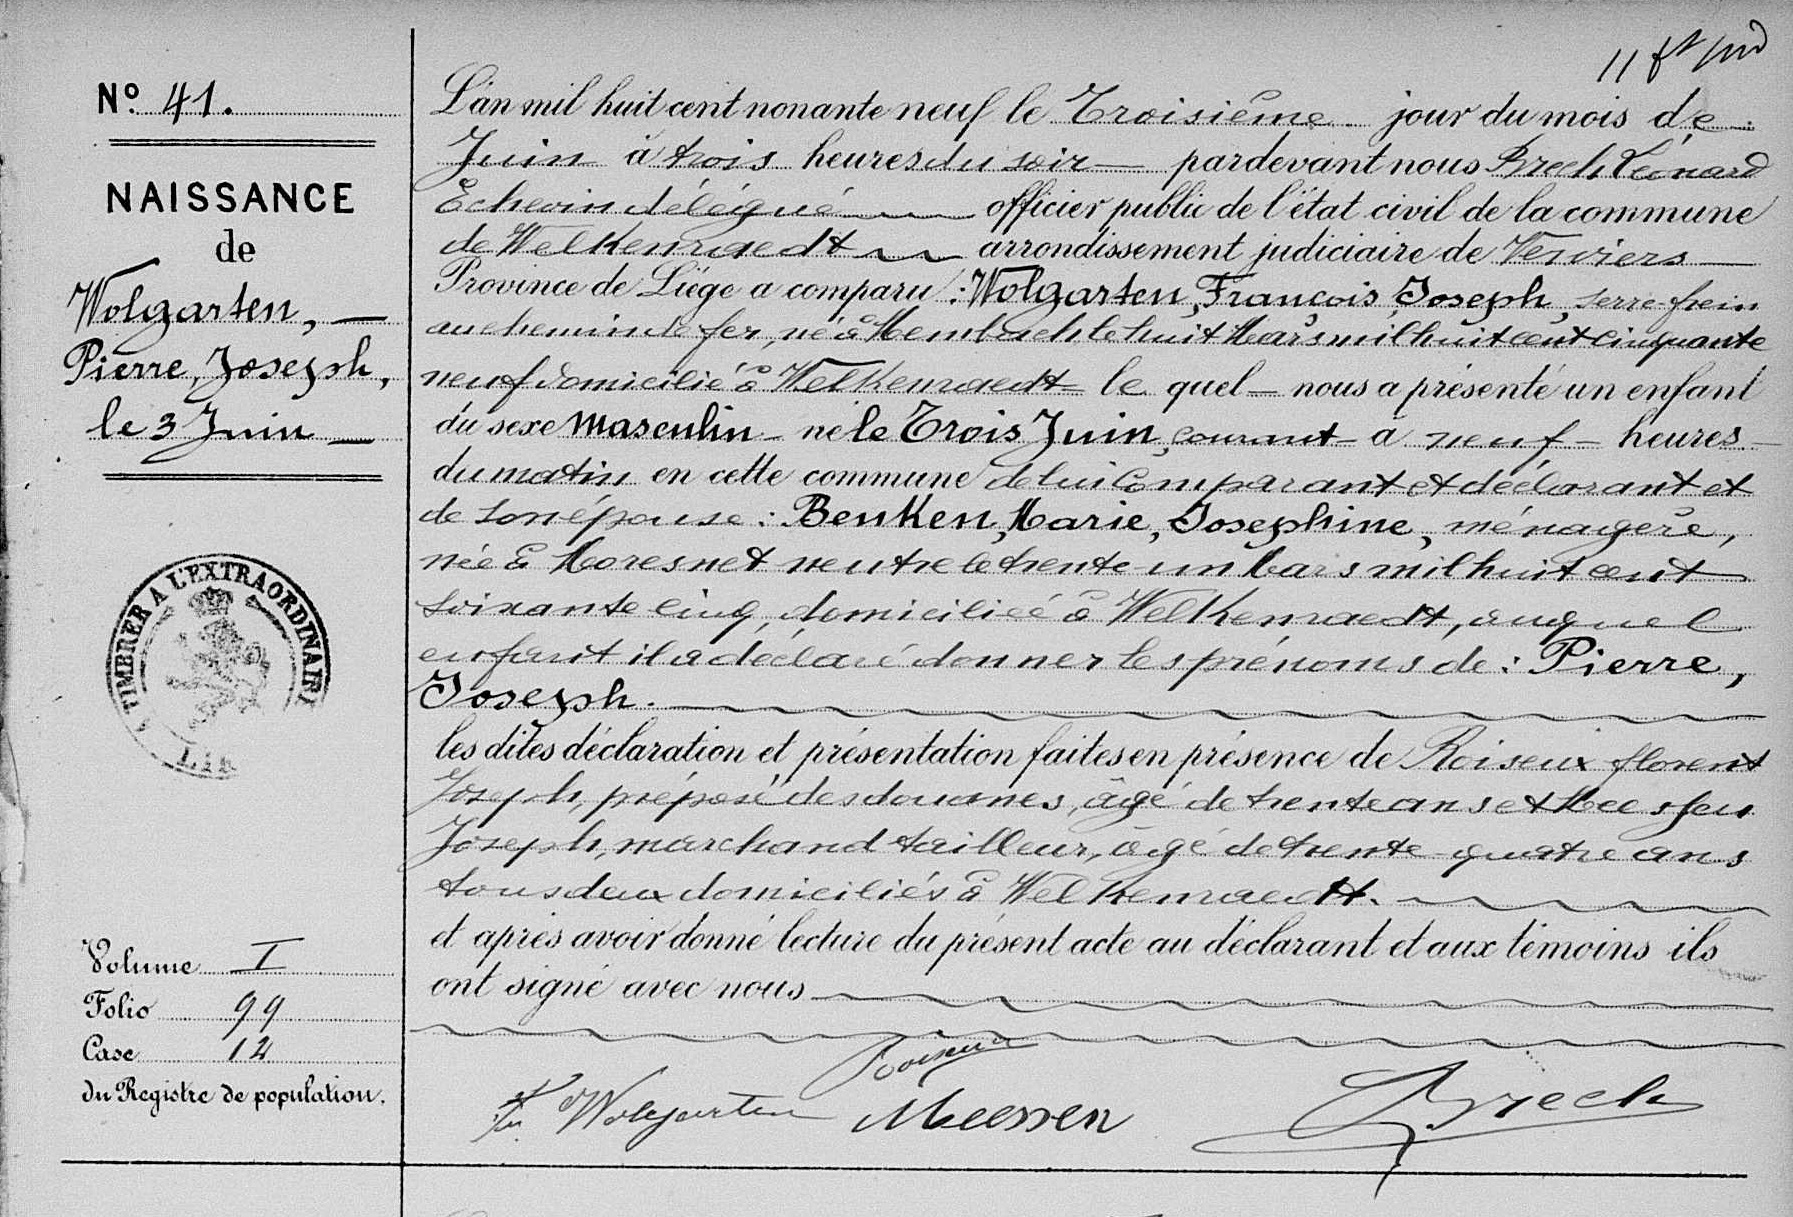 Nº 41.
NAISSANCE
de
Wolgarten, —
Pierre, Joseph,
le 3 Juin —
A TIMBRER A L'EXTRAORDINAIRE
Volume I
Folio 99
Case 12
du Registre de population.
L'an mil huit cent nonante neuf le Troisième jour du mois de
Juin à trois heures du soir — pardevant nous Brech Léonard
Echevin délégué — officier public de l'état civil de la commune
de Welkenraedt — arrondissement judiciaire de Verviers —
Province de Liège a comparu : Wolgarten, François, Joseph, serre-frein
au chemin de fer, né à Membach le huit Mars mil huit cent cinquante
neuf domicilié à Welkenraedt le quel — nous a présenté un enfant
du sexe masculin — né le Trois Juin, courant à neuf — heures —
du matin en cette commune de lui Comparant et déclarant et
de son épouse : Benken, Marie, Josephine, ménagère,
née à Moresnet neutre le trente-un Mars mil huit cent
soixante cinq, domiciliée à Welkenraedt, auquel
enfant il a déclaré donner les prénoms de : Pierre,
Joseph.
les dites déclaration et présentation faites en présence de Roiseux florent
Joseph, préposé des douanes, âgé de trente ans et Meessen
Joseph, marchand tailleur, âgé de trente-quatre ans
tous deux domiciliés à Welkenraedt.
et après avoir donné lecture du présent acte au déclarant et aux témoins ils
ont signé avec nous
Roiseux
Wolgarten Meessen Brech